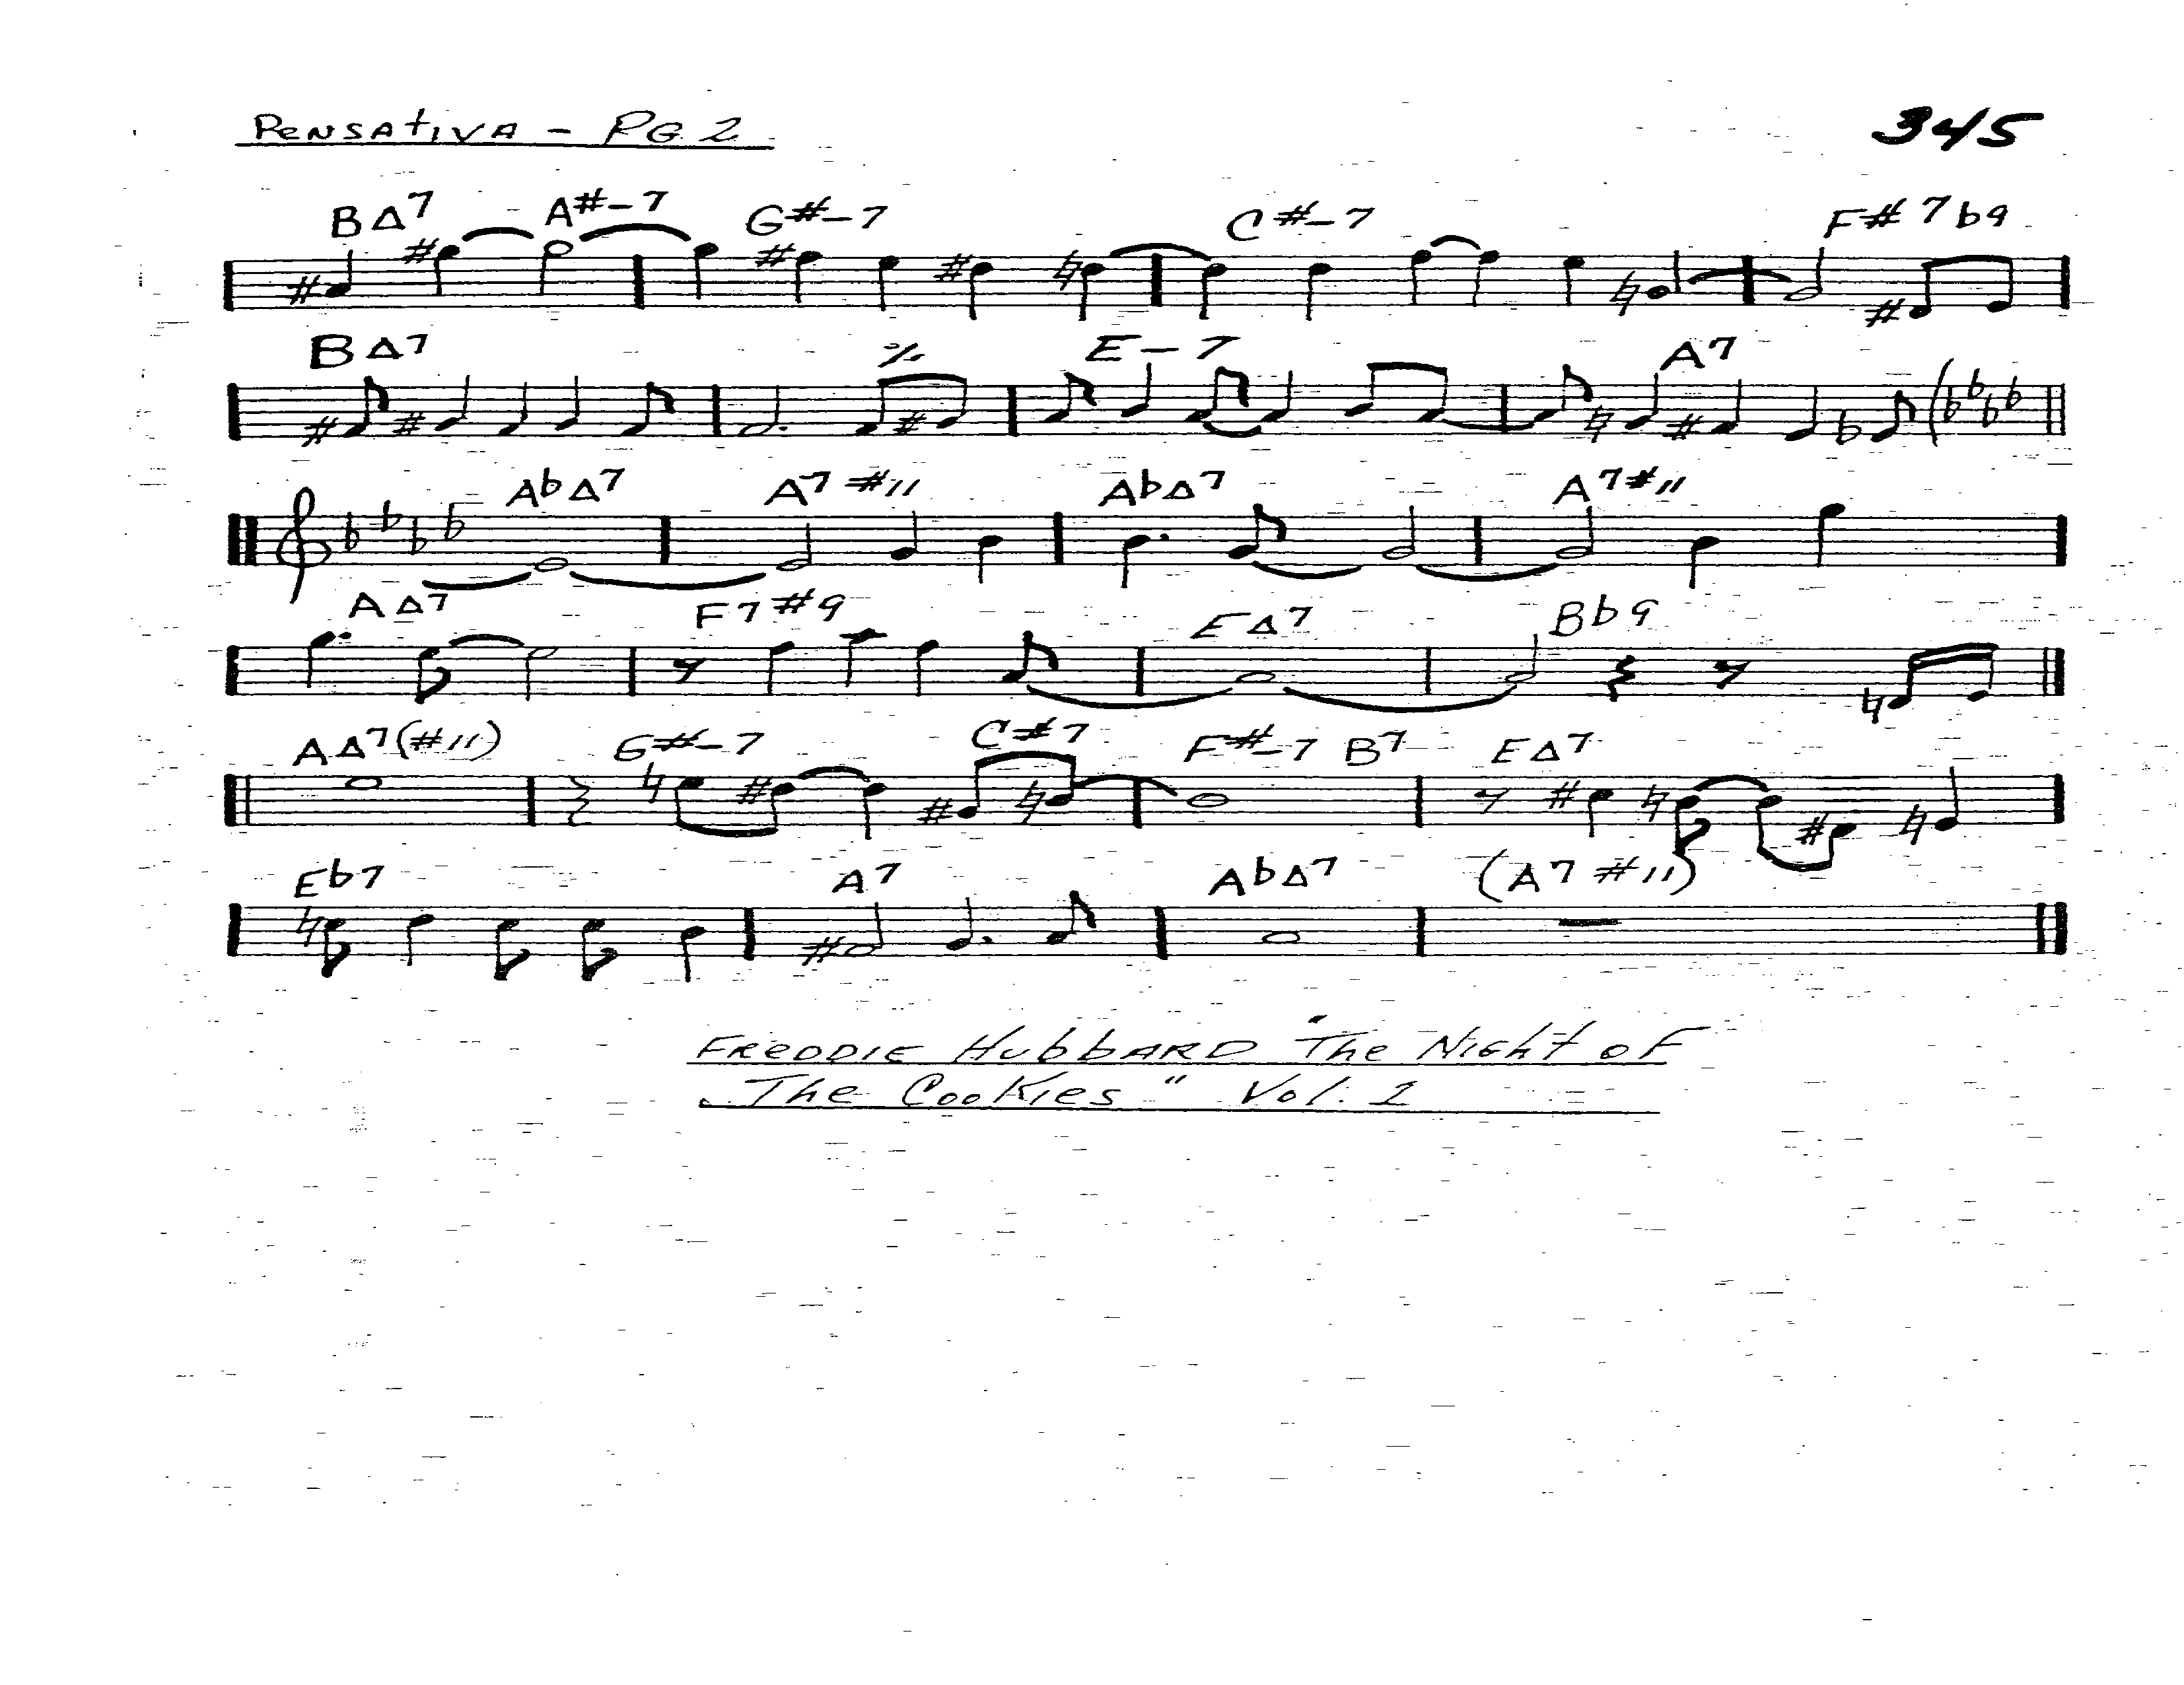 Pensativa – Pg. 2 345
BΔ7 A#–7 G#–7 C#–7 F#7b9
BΔ7 % E–7 A7
AbΔ7 A7#11 AbΔ7 A7#11
AΔ7 F7#9 EΔ7 Bb9
AΔ7(#11) G#–7 C#7 F#–7 B7 EΔ7
Eb7 A7 AbΔ7 (A7#11)
Freddie Hubbard "The Night of
The Cookies" Vol. 1